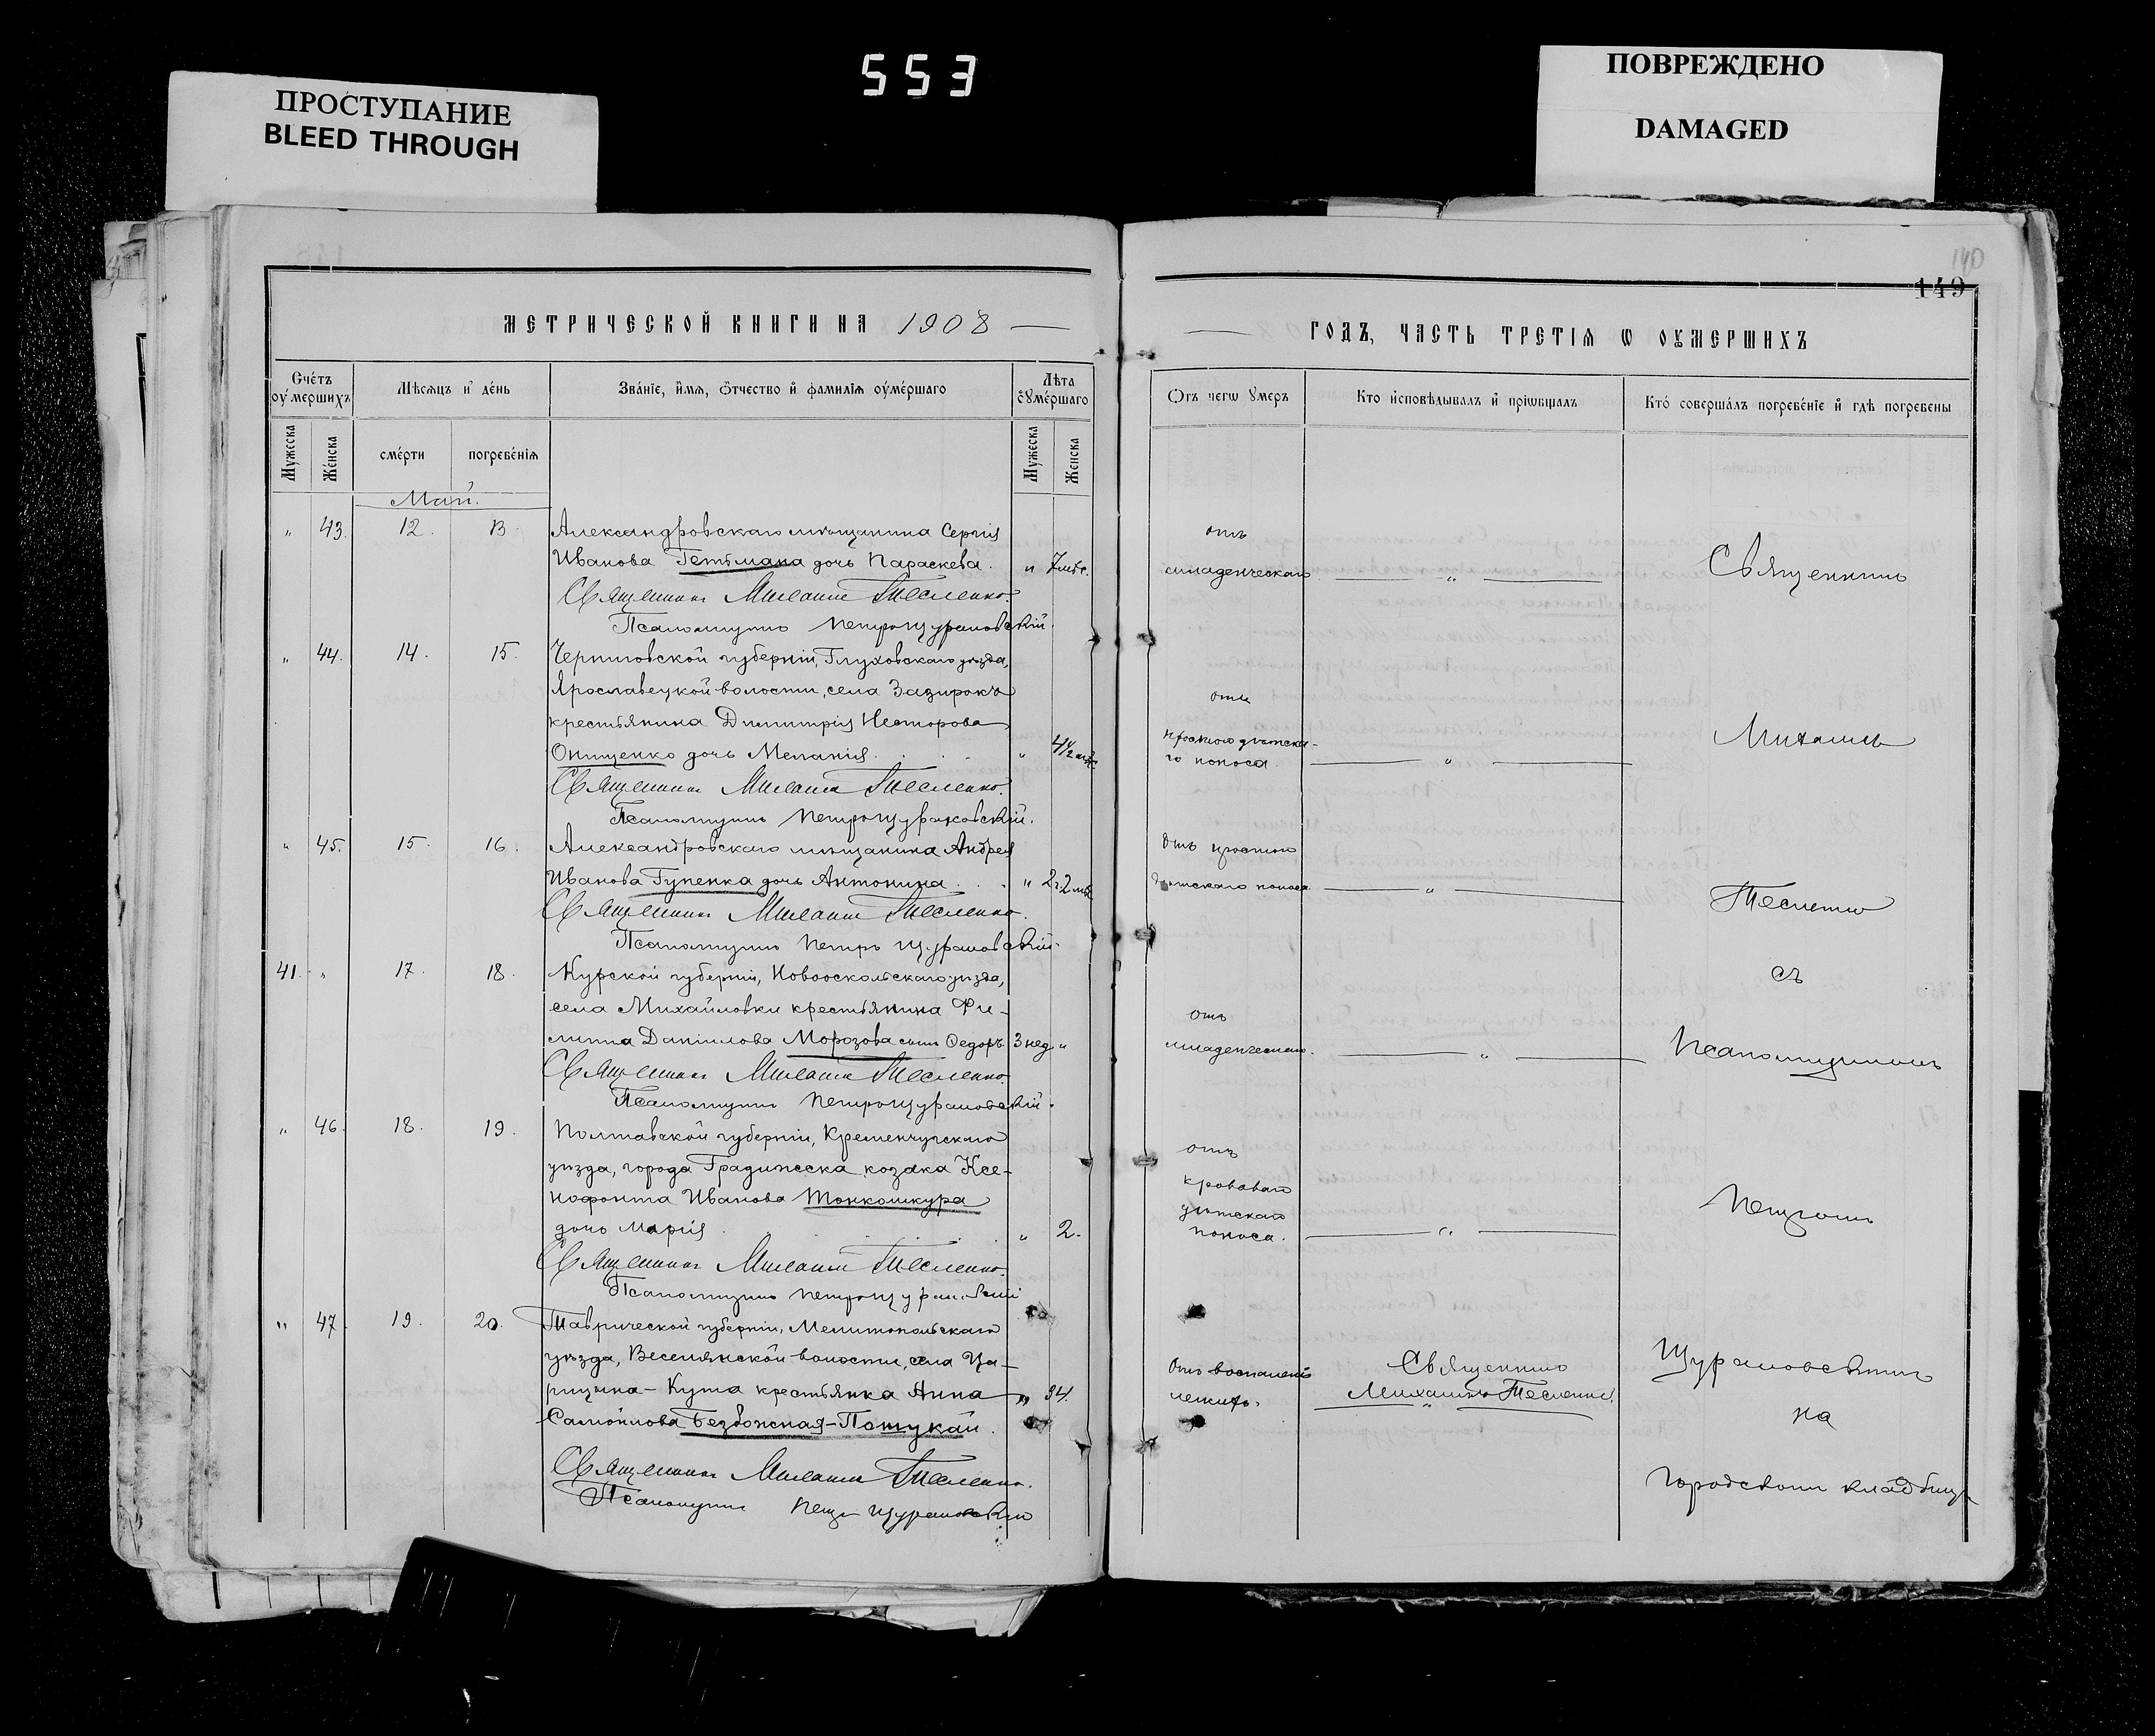 553
ПРОСТУПАНИЕ
BLEED THROUGH
ПОВРЕЖДЕНО
DAMAGED
140
149
МЕТРИЧЕСКОЙ КНИГИ НА 1908
ГОДЪ, ЧАСТЬ ТРЕТІѦ Ѡ ОУМЕРШИХЪ
Счетъ оумершихъ
Мѣсѧцъ и день
Званіе, имѧ, ѿчество и фамиліѧ оумершаго
Лѣта оумершаго
Мужеска
Женска
смерти
погребеніѧ
Мужеска
Женска
Отъ чегѡ умеръ
Кто исповѣдывалъ и пріѡбщалъ
Кто совершалъ погребеніе и гдѣ погребены
Май.
" 43. 12. 13. Александровскаго мѣщанина Сергія
Иванова Гетьмана дочь Параскева. " 7 мѣс.
Священникъ Михаилъ Тесленко.
Псаломщикъ Петръ Щурановскій.
" 44. 14. 15. Черниговской губерніи, Глуховскаго уѣзда,
Ярославецкой волости, села Зазирокъ
крестьянина Димитрія Несторова
Онищенко дочь Меланія. " 4½ мѣс.
Священникъ Михаилъ Тесленко.
Псаломщикъ Петръ Щурановскій.
" 45. 15. 16. Александровскаго мѣщанина Андрея
Иванова Гупенка дочь Антонина. " 2 г. 2 мѣс.
Священникъ Михаилъ Тесленко.
Псаломщикъ Петръ Щурановскій.
41. " 17. 18. Курской губерніи, Новооскольскаго уѣзда,
села Михайловки крестьянина Фи-
липпа Даніилова Морозова сынъ Ѳедоръ 3 нед. "
Священникъ Михаилъ Тесленко.
Псаломщикъ Петръ Щурановскій.
" 46. 18. 19. Полтавской губерніи, Кременчугскаго
уѣзда, города Градижска козака Ксе-
нофонта Иванова Тонкошкура
дочь Марія. " 2.
Священникъ Михаилъ Тесленко.
Псаломщикъ Петръ Щурановскій
" 47. 19. 20. Таврической губерніи, Мелитопольскаго
уѣзда, Веселянской волости, села Ца-
рицына-Кута крестьянка Анна " 34.
Самойлова Безбожная-Потукай.
Священникъ Михаилъ Тесленко.
Псаломщикъ Петръ Щурановскій
отъ
младенческаго "
отъ
простого дѣтска-
го поноса. "
Отъ простого
дѣтскаго поноса. "
отъ
младенческаго. "
отъ
кроваваго
дѣтскаго
поноса. "
Отъ воспаленія
легкихъ.
Священникъ
Михаилъ Тесленко.
Священникъ
Михаилъ
Тесленко
съ
Псаломщикомъ
Петромъ
Щурановскимъ
на
городскомъ кладбищѣ